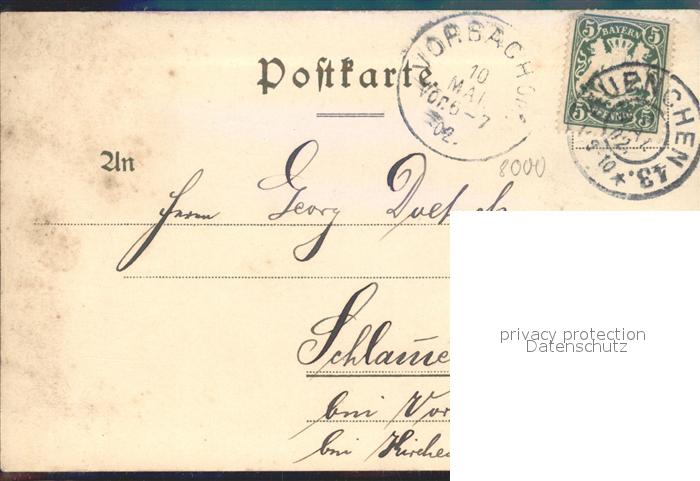 Postkarte
VORBACH
10
MAI.
Vor.6-7
02.
5 5
BAYERN
5 5
MUENCHEN 43.
8000
An
Herrn Georg
Schlam
bei Vor
bei Kirchen
privacy protection
Datenschutz